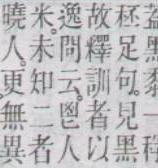 蓋黑黍一
秠足句。見黑
故釋訓者以
逸問云。鬯人
米。未知二者
曉人。更無異